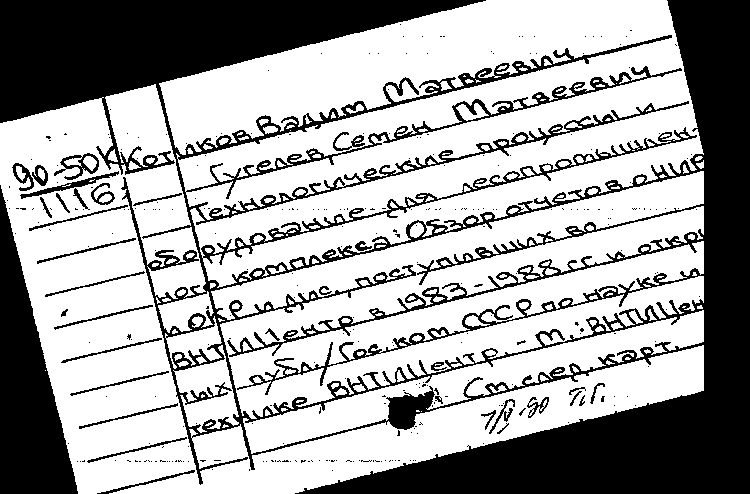 90-50К
1116:
Котиков, Вадим Матвеевич,
Гугелев, Семен Матвеевич.
Технологические процессы и
оборудование для лесопромышлен-
ного комплекса: Обзор отчетов о НИР
и ОКР и дис., поступивших во
ВНТИЦентр в 1983-1988 гг. и откры
тых публ. / Гос. ком. СССР по науке и
технике, ВНТИЦентр. - М.: ВНТИЦен
См. след. карт.